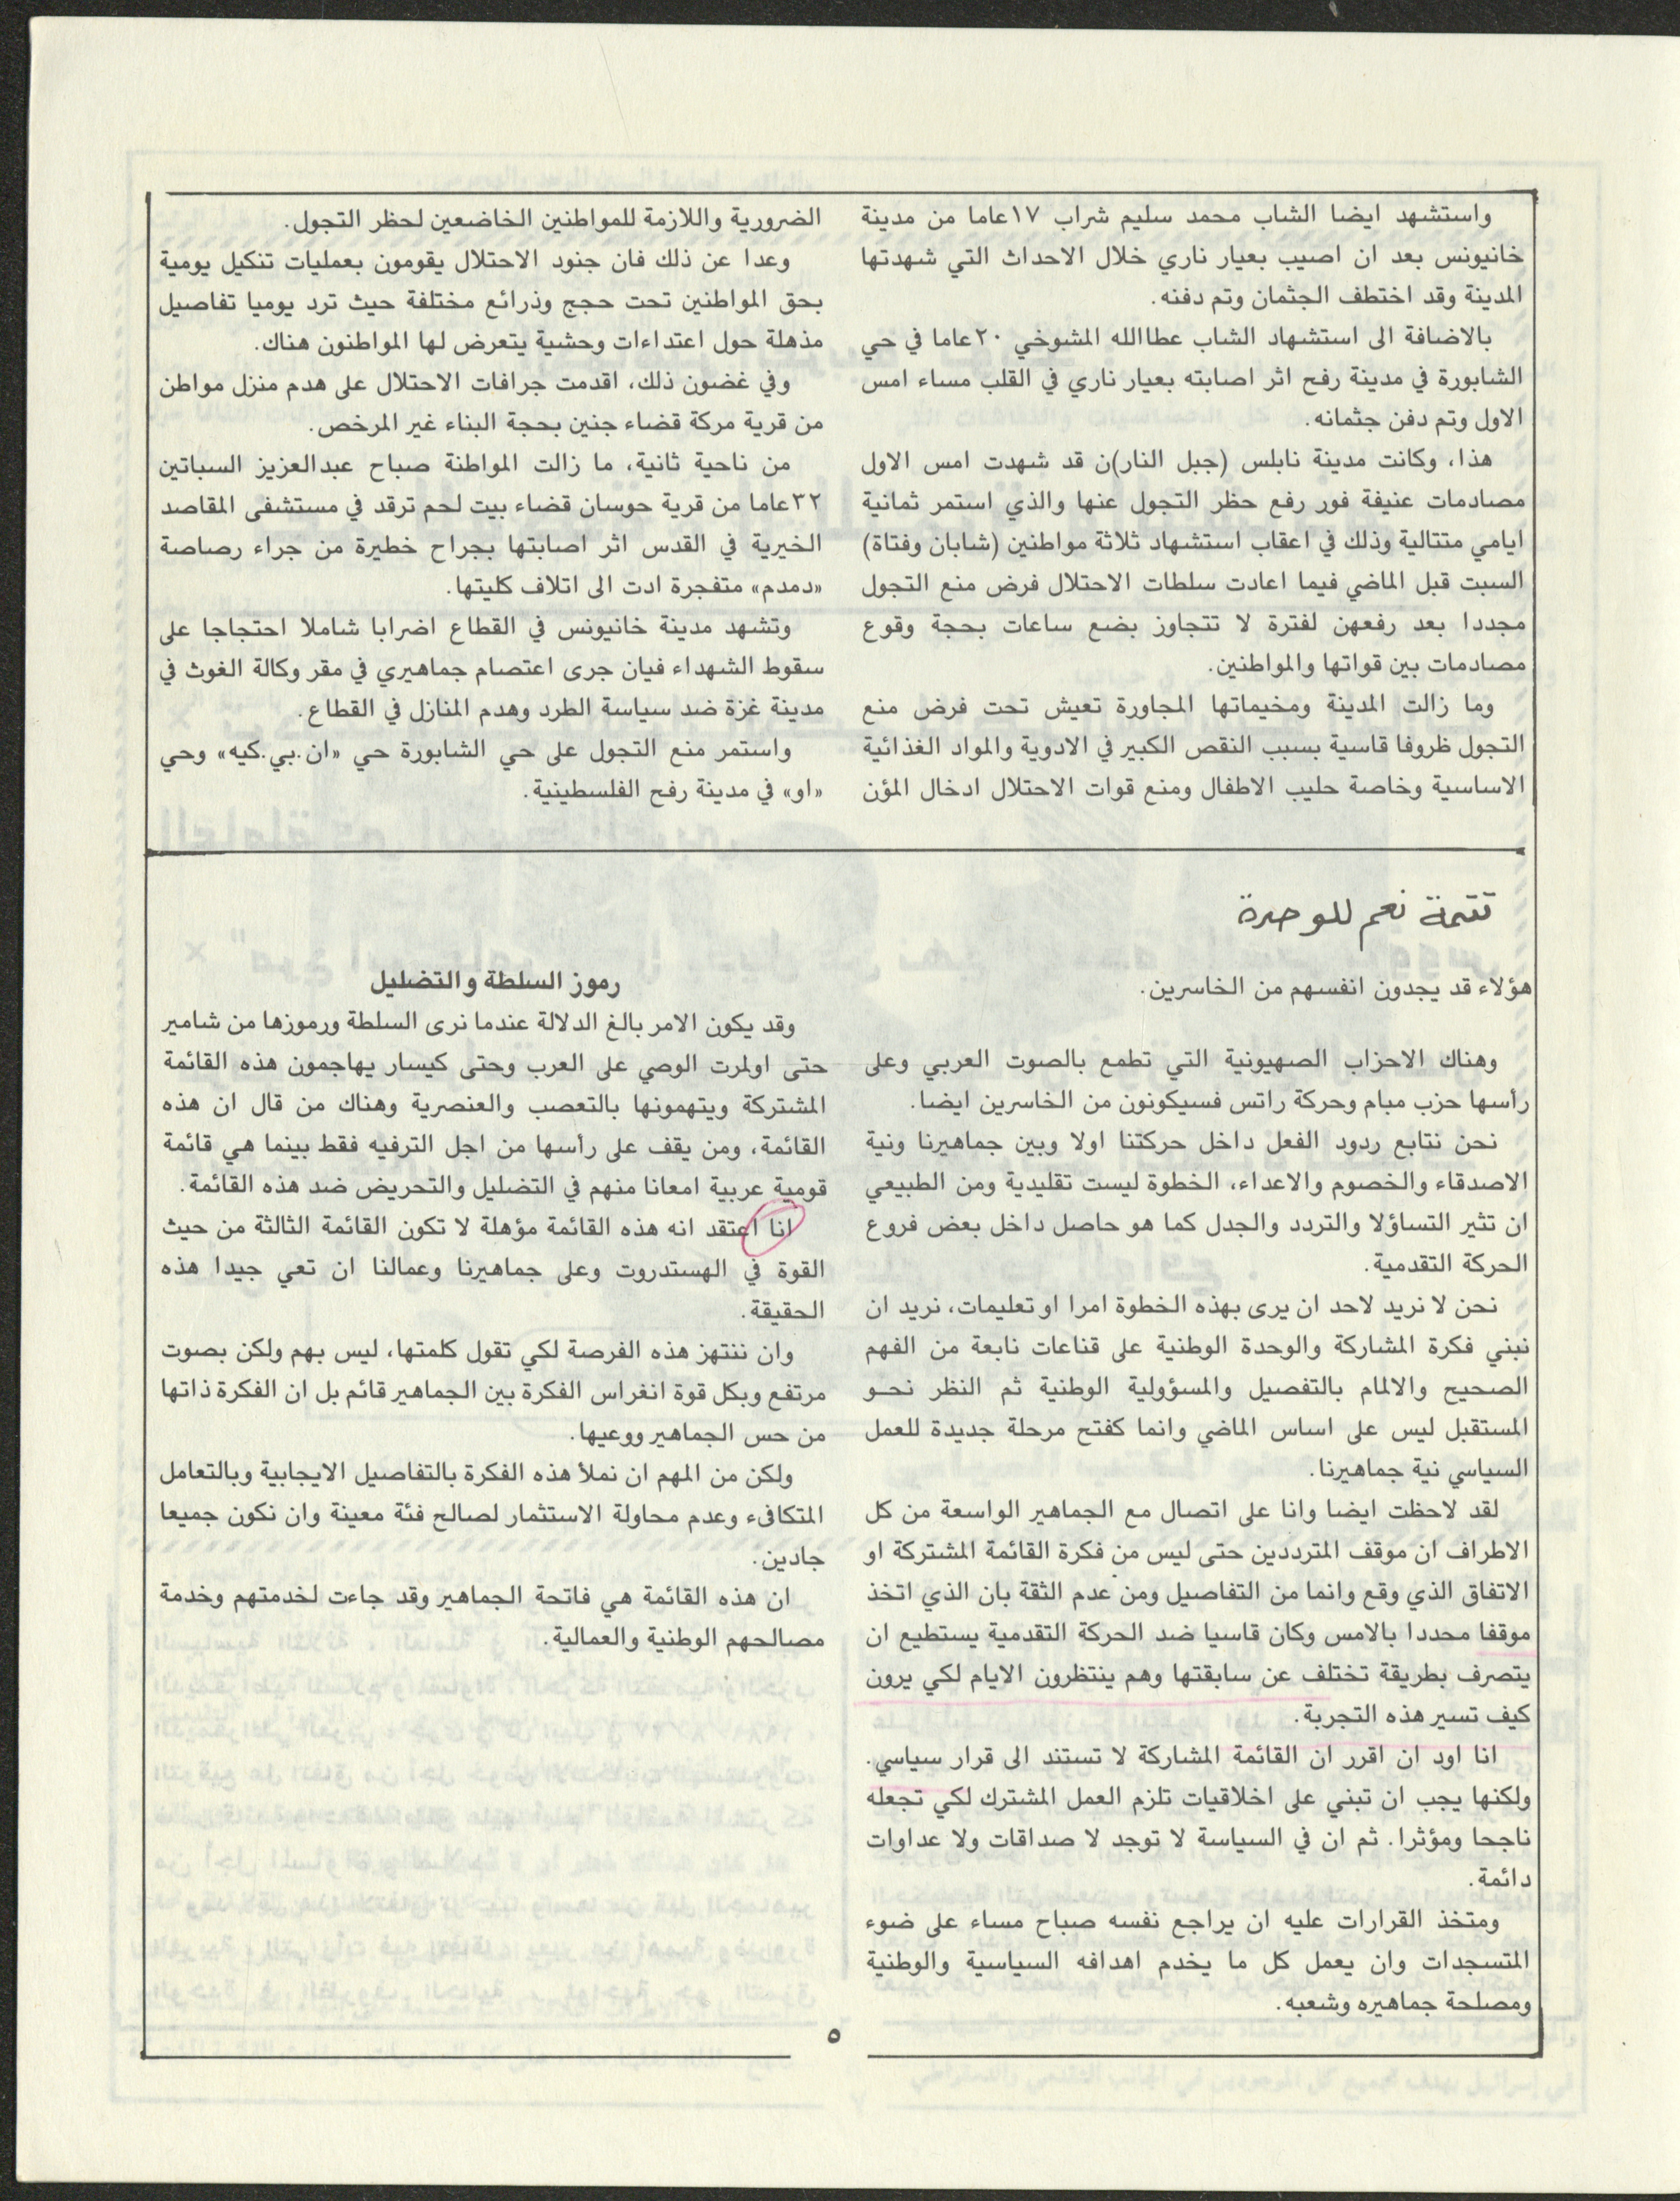 واستشهد ايضا الشاب محمد سليم شراب ١٧عاما من مدينة
خانيونس بعد ان اصيب بعيار ناري خلال الاحداث التي شهدتها
المدينة وقد اختطف الجثمان وتم دفنه.
بالاضافة الى استشهاد الشاب عطاالله المشوخي ٢٠عاما في حي
الشابورة في مدينة رفح اثر اصابته بعيار ناري في القلب مساء امس
الاول وتم دفن جثمانه.
هذا، وكانت مدينة نابلس (جبل النار)ن قد شهدت امس الاول
مصادمات عنيفة فور رفع حظر التجول عنها والذي استمر ثمانية
ايامي متتالية وذلك في اعقاب استشهاد ثلاثة مواطنين (شابان وفتاة)
السبت قبل الماضي فيما اعادت سلطات الاحتلال فرض منع التجول
مجددا بعد رفعهن لفترة لا تتجاوز بضع ساعات بحجة وقوع
مصادمات بين قواتها والمواطنين.
وما زالت المدينة ومخيماتها المجاورة تعيش تحت فرض منع
التجول ظروفا قاسية بسبب النقص الكبير في الادوية والمواد الغذائية
الاساسية وخاصة حليب الاطفال ومنع قوات الاحتلال ادخال المؤن
الضرورية واللازمة للمواطنين الخاضعين لحظر التجول.
وعدا عن ذلك فان جنود الاحتلال يقومون بعمليات تنكيل يومية
بحق المواطنين تحت حجج وذرائع مختلفة حيث ترد يوميا تفاصيل
مذهلة حول اعتداءات وحشية يتعرض لها المواطنون هناك.
وفي غضون ذلك، اقدمت جرافات الاحتلال على هدم منزل مواطن
من قرية مركة قضاء جنين بحجة البناء غير المرخص.
من ناحية ثانية، ما زالت المواطنة صباح عبدالعزيز السباتين
٣٢عاما من قرية حوسان قضاء بيت لحم ترقد في مستشفى المقاصد
الخيرية في القدس اثر اصابتها بجراح خطيرة من جراء رصاصة
«دمدم» متفجرة ادت الى اتلاف كليتها.
وتشهد مدينة خانيونس في القطاع اضرابا شاملا احتجاجا على
سقوط الشهداء فيان جرى اعتصام جماهيري في مقر وكالة الغوث في
مدينة غزة ضد سياسة الطرد وهدم المنازل في القطاع.
واستمر منع التجول على حي الشابورة حي «ان.بي.كيه» وحي
«او» في مدينة رفح الفلسطينية.
تتمة نعم للوحدة
هؤلاء قد يجدون انفسهم من الخاسرين.
وهناك الاحزاب الصهيونية التي تطمع بالصوت العربي وعلى
رأسها حزب مبام وحركة راتس فسيكونون من الخاسرين ايضا.
نحن نتابع ردود الفعل داخل حركتنا اولا وبين جماهيرنا ونية
الاصدقاء والخصوم والاعداء، الخطوة ليست تقليدية ومن الطبيعي
ان تثير التساؤلا والتردد والجدل كما هو حاصل داخل بعض فروع
الحركة التقدمية.
نحن لا نريد لاحد ان يرى بهذه الخطوة امرا او تعليمات، نريد ان
نبني فكرة المشاركة والوحدة الوطنية على قناعات نابعة من الفهم
الصحيح والالمام بالتفصيل والمسؤولية الوطنية ثم النظر نحو
المستقبل ليس على اساس الماضي وانما كفتح مرحلة جديدة للعمل
السياسي نية جماهيرنا.
لقد لاحظت ايضا وانا على اتصال مع الجماهير الواسعة من كل
الاطراف ان موقف المترددين حتى ليس من فكرة القائمة المشتركة او
الاتفاق الذي وقع وانما من التفاصيل ومن عدم الثقة بان الذي اتخذ
موقفا محددا بالامس وكان قاسيا ضد الحركة التقدمية يستطيع ان
يتصرف بطريقة تختلف عن سابقتها وهم ينتظرون الايام لكي يرون
كيف تسير هذه التجربة.
انا اود ان اقرر ان القائمة المشاركة لا تستند الى قرار سياسي.
ولكنها يجب ان تبني على اخلاقيات تلزم العمل المشترك لكي تجعله
ناجحا ومؤثرا. ثم ان في السياسة لا توجد لا صداقات ولا عداوات
دائمة.
ومتخذ القرارات عليه ان يراجع نفسه صباح مساء على ضوء
المتسجدات وان يعمل كل ما يخدم اهدافه السياسية والوطنية
ومصلحة جماهيره وشعبه.
رموز السلطة والتضليل
وقد يكون الامر بالغ الدلالة عندما نرى السلطة ورموزها من شامير
حتى اولمرت الوصي على العرب وحتى كيسار يهاجمون هذه القائمة
المشتركة ويتهمونها بالتعصب والعنصرية وهناك من قال ان هذه
القائمة، ومن يقف على رأسها من اجل الترفيه فقط بينما هي قائمة
قومية عربية امعانا منهم في التضليل والتحريض ضد هذه القائمة.
انا اعتقد انه هذه القائمة مؤهلة لا تكون القائمة الثالثة من حيث
القوة في الهستدروت وعلى جماهيرنا وعمالنا ان تعي جيدا هذه
الحقيقة.
وان ننتهز هذه الفرصة لكي تقول كلمتها، ليس بهم ولكن بصوت
مرتفع وبكل قوة انغراس الفكرة بين الجماهير قائم بل ان الفكرة ذاتها
من حس الجماهير ووعيها.
ولكن من المهم ان نملأ هذه الفكرة بالتفاصيل الايجابية وبالتعامل
المتكافىء وعدم محاولة الاستثمار لصالح فئة معينة وان نكون جميعا
جادين.
ان هذه القائمة هي فاتحة الجماهير وقد جاءت لخدمتهم وخدمة
مصالحهم الوطنية والعمالية.
٥